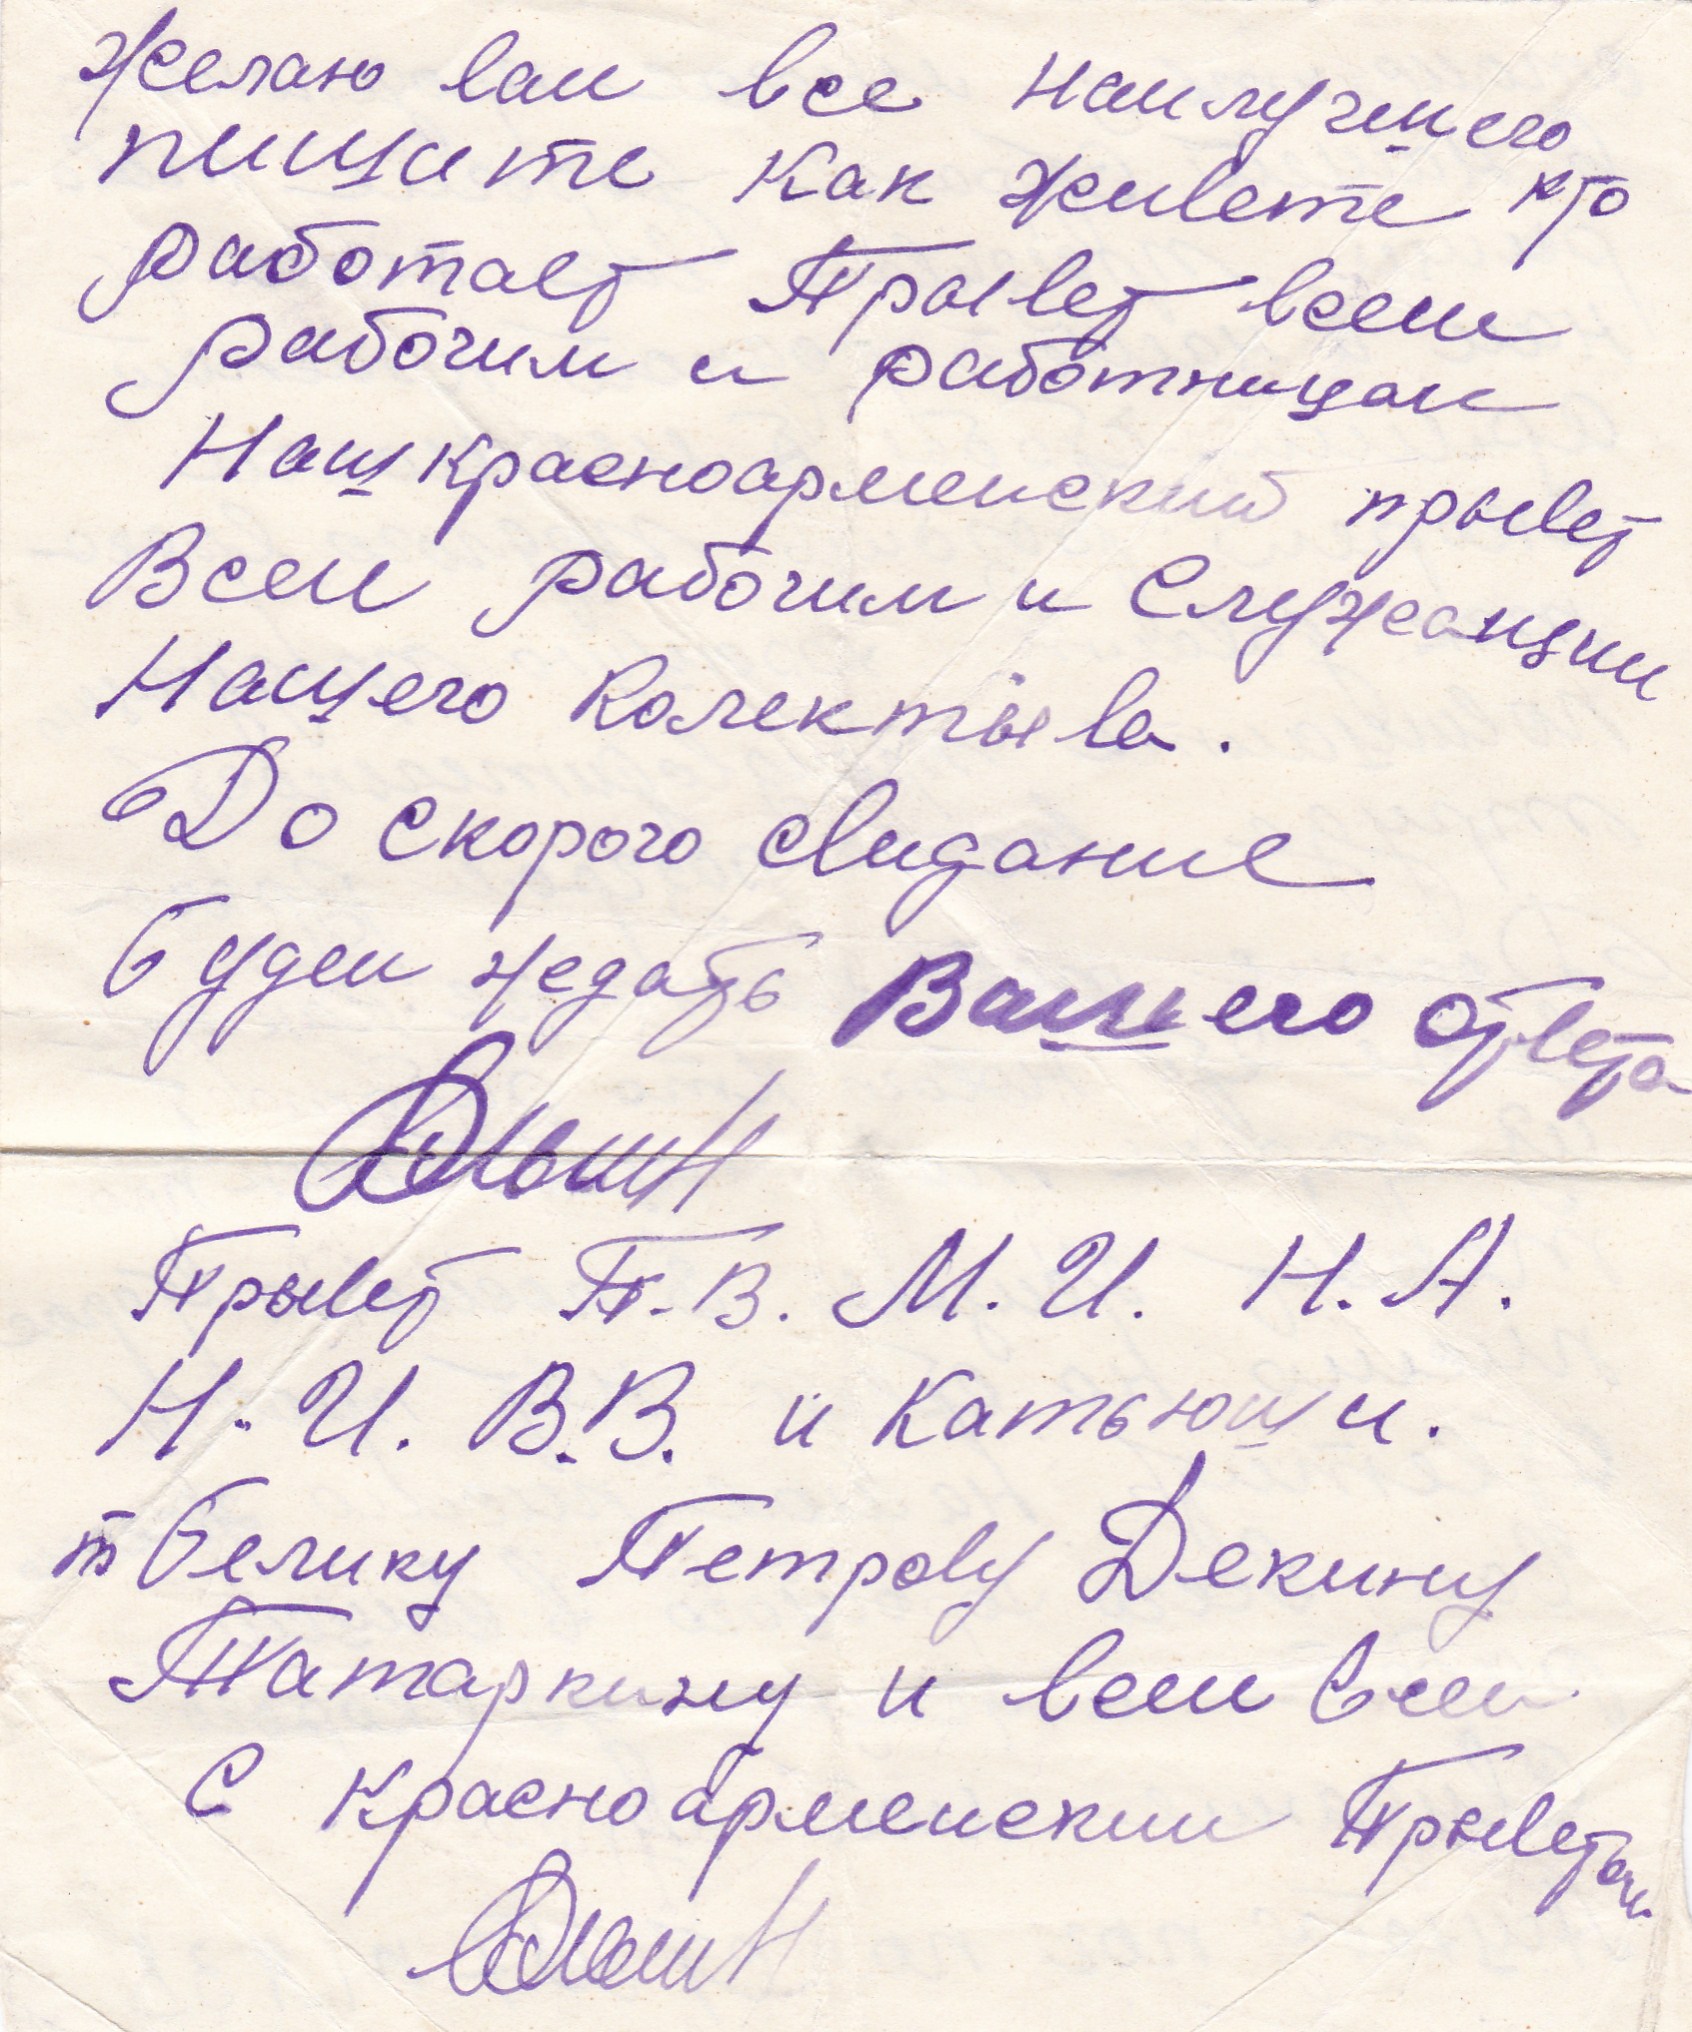 Желаю вам все наилучшего
пишите как живете кто
работает Прывет всем
рабочим и работницам
Наш красноармейский прывет
Всем рабочим и Служащим
Нашего Колектыва.
До скорого свидание
будем жедать Вашего ответа
Прывет П.В. М.И. Н.А.
Н.И. В.В. и Катьюши.
т Белику Петрову Декину
Татаркину и всем всем
С красноармейским Прыветом.